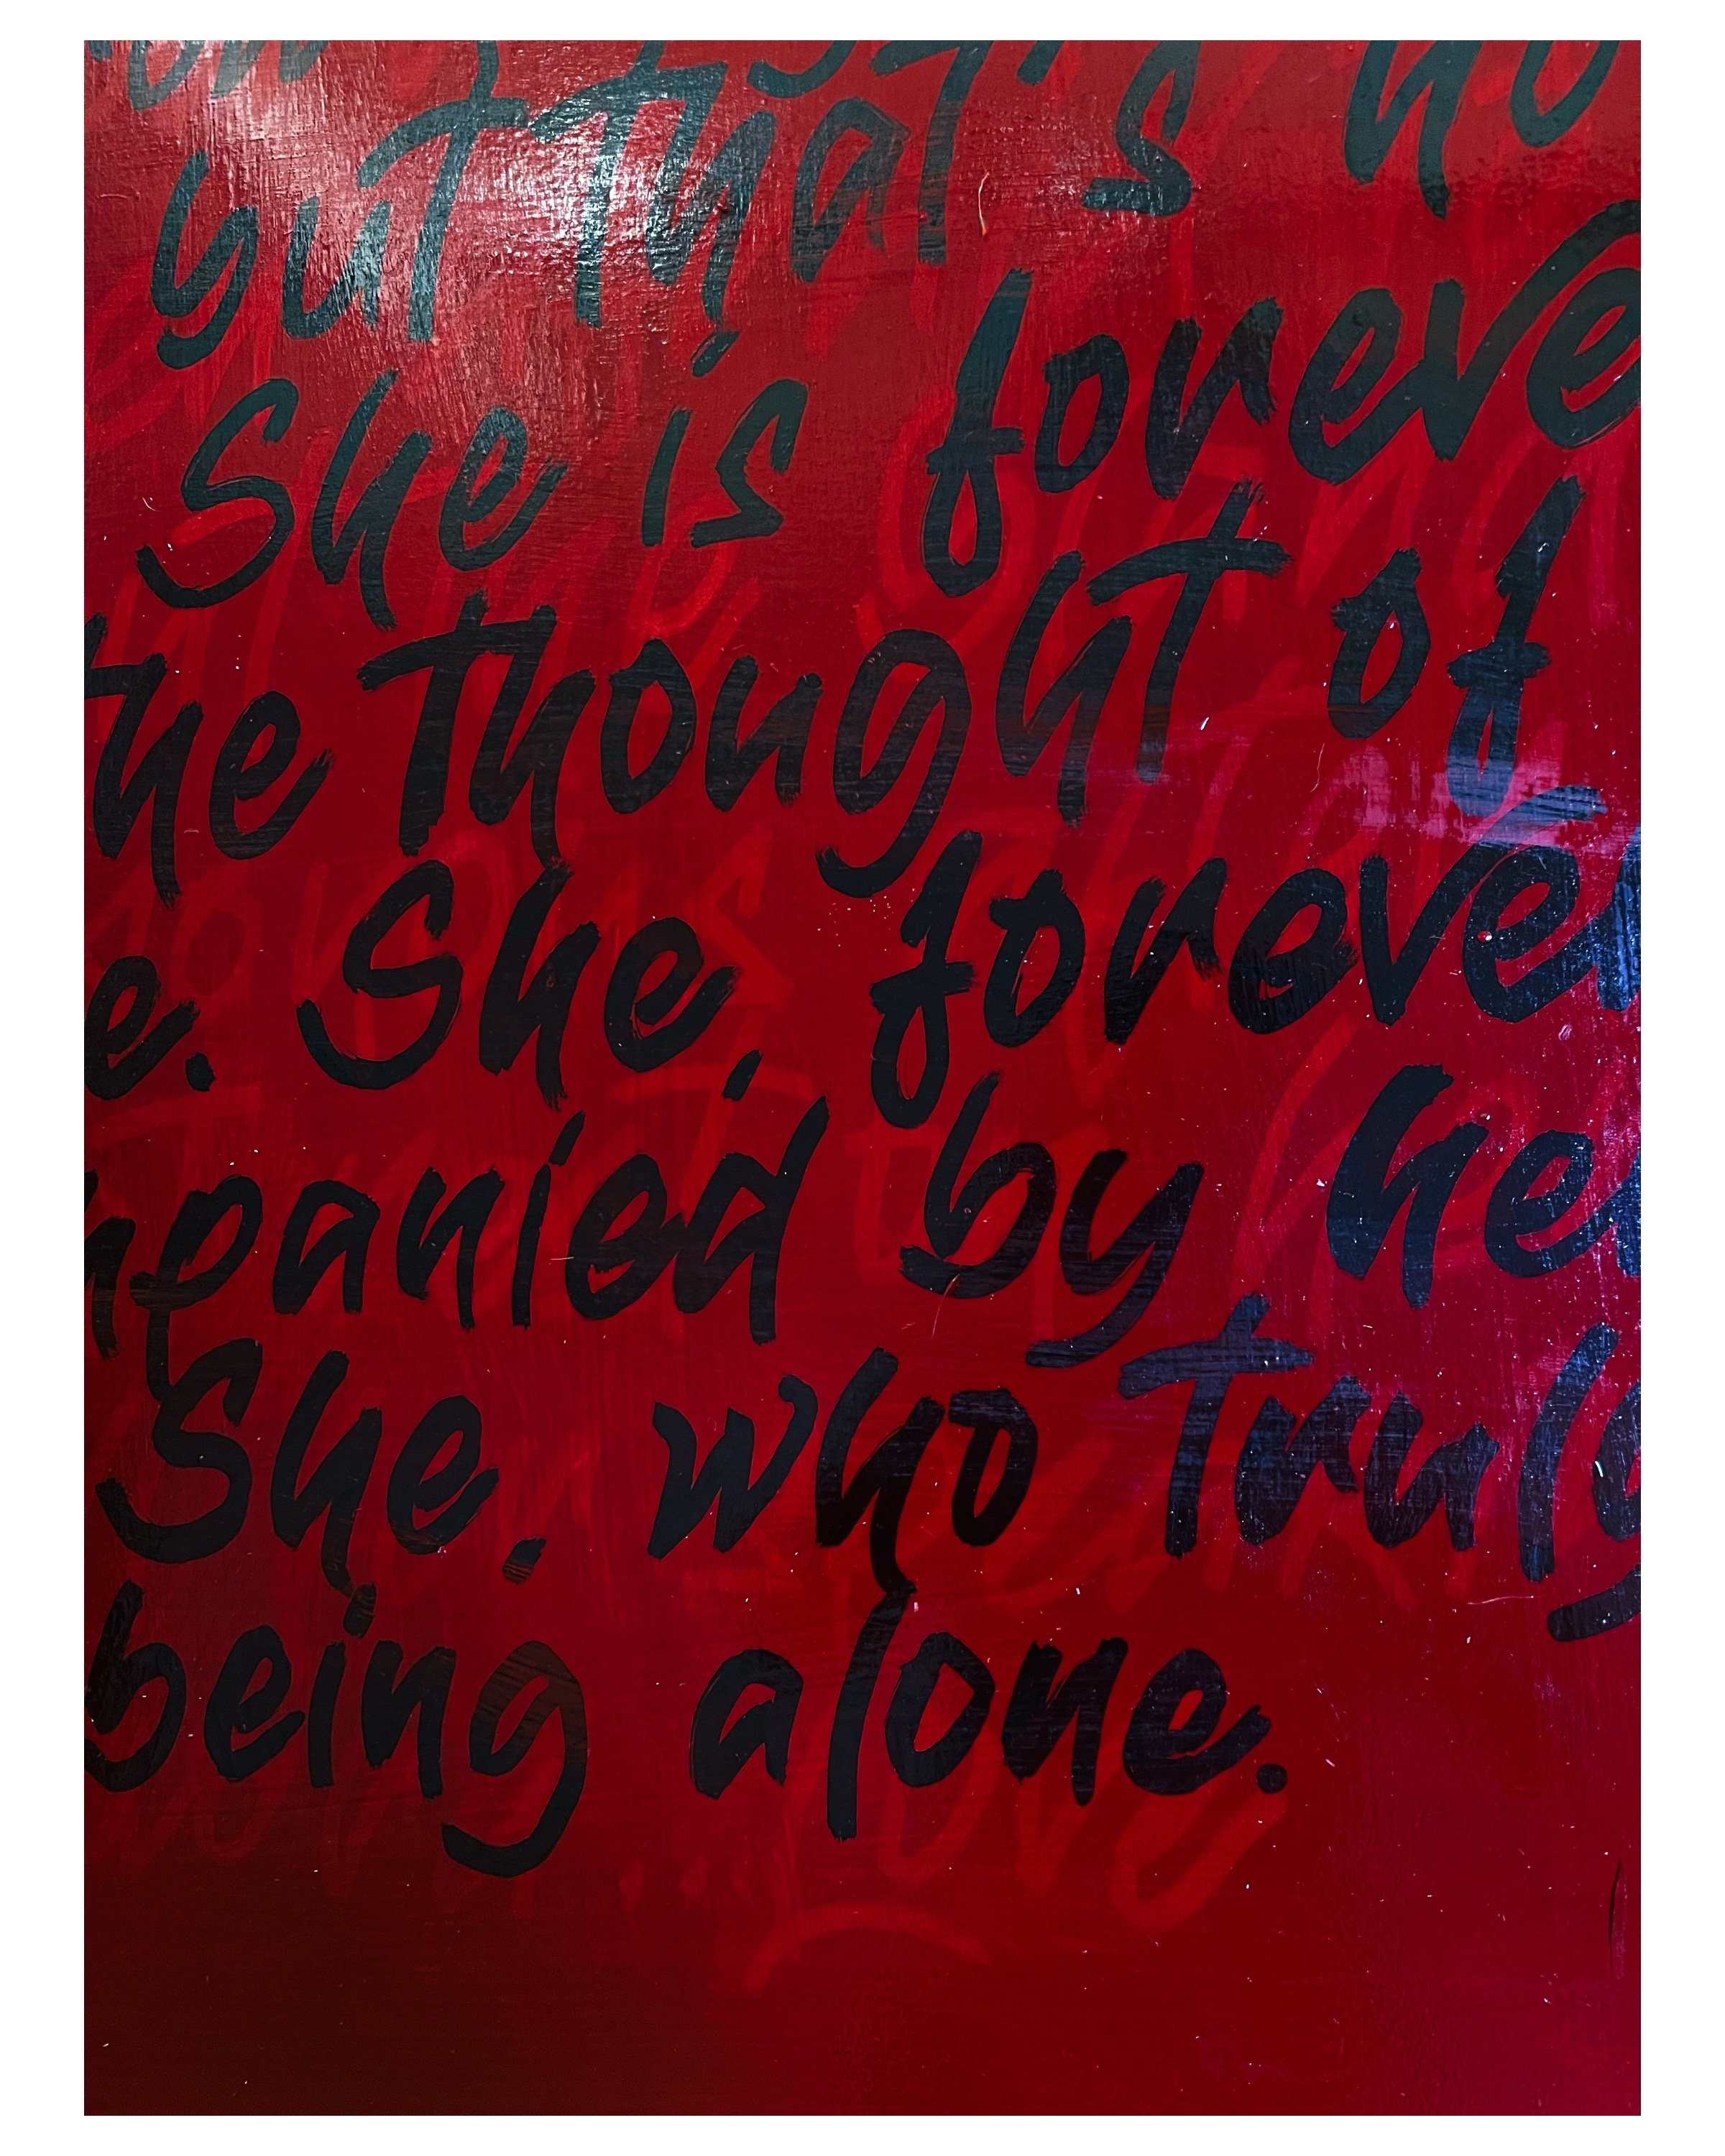 but that's no
She is foreve
the thought of
e. She, forever
mpanied by her
She, who truly
being alone.